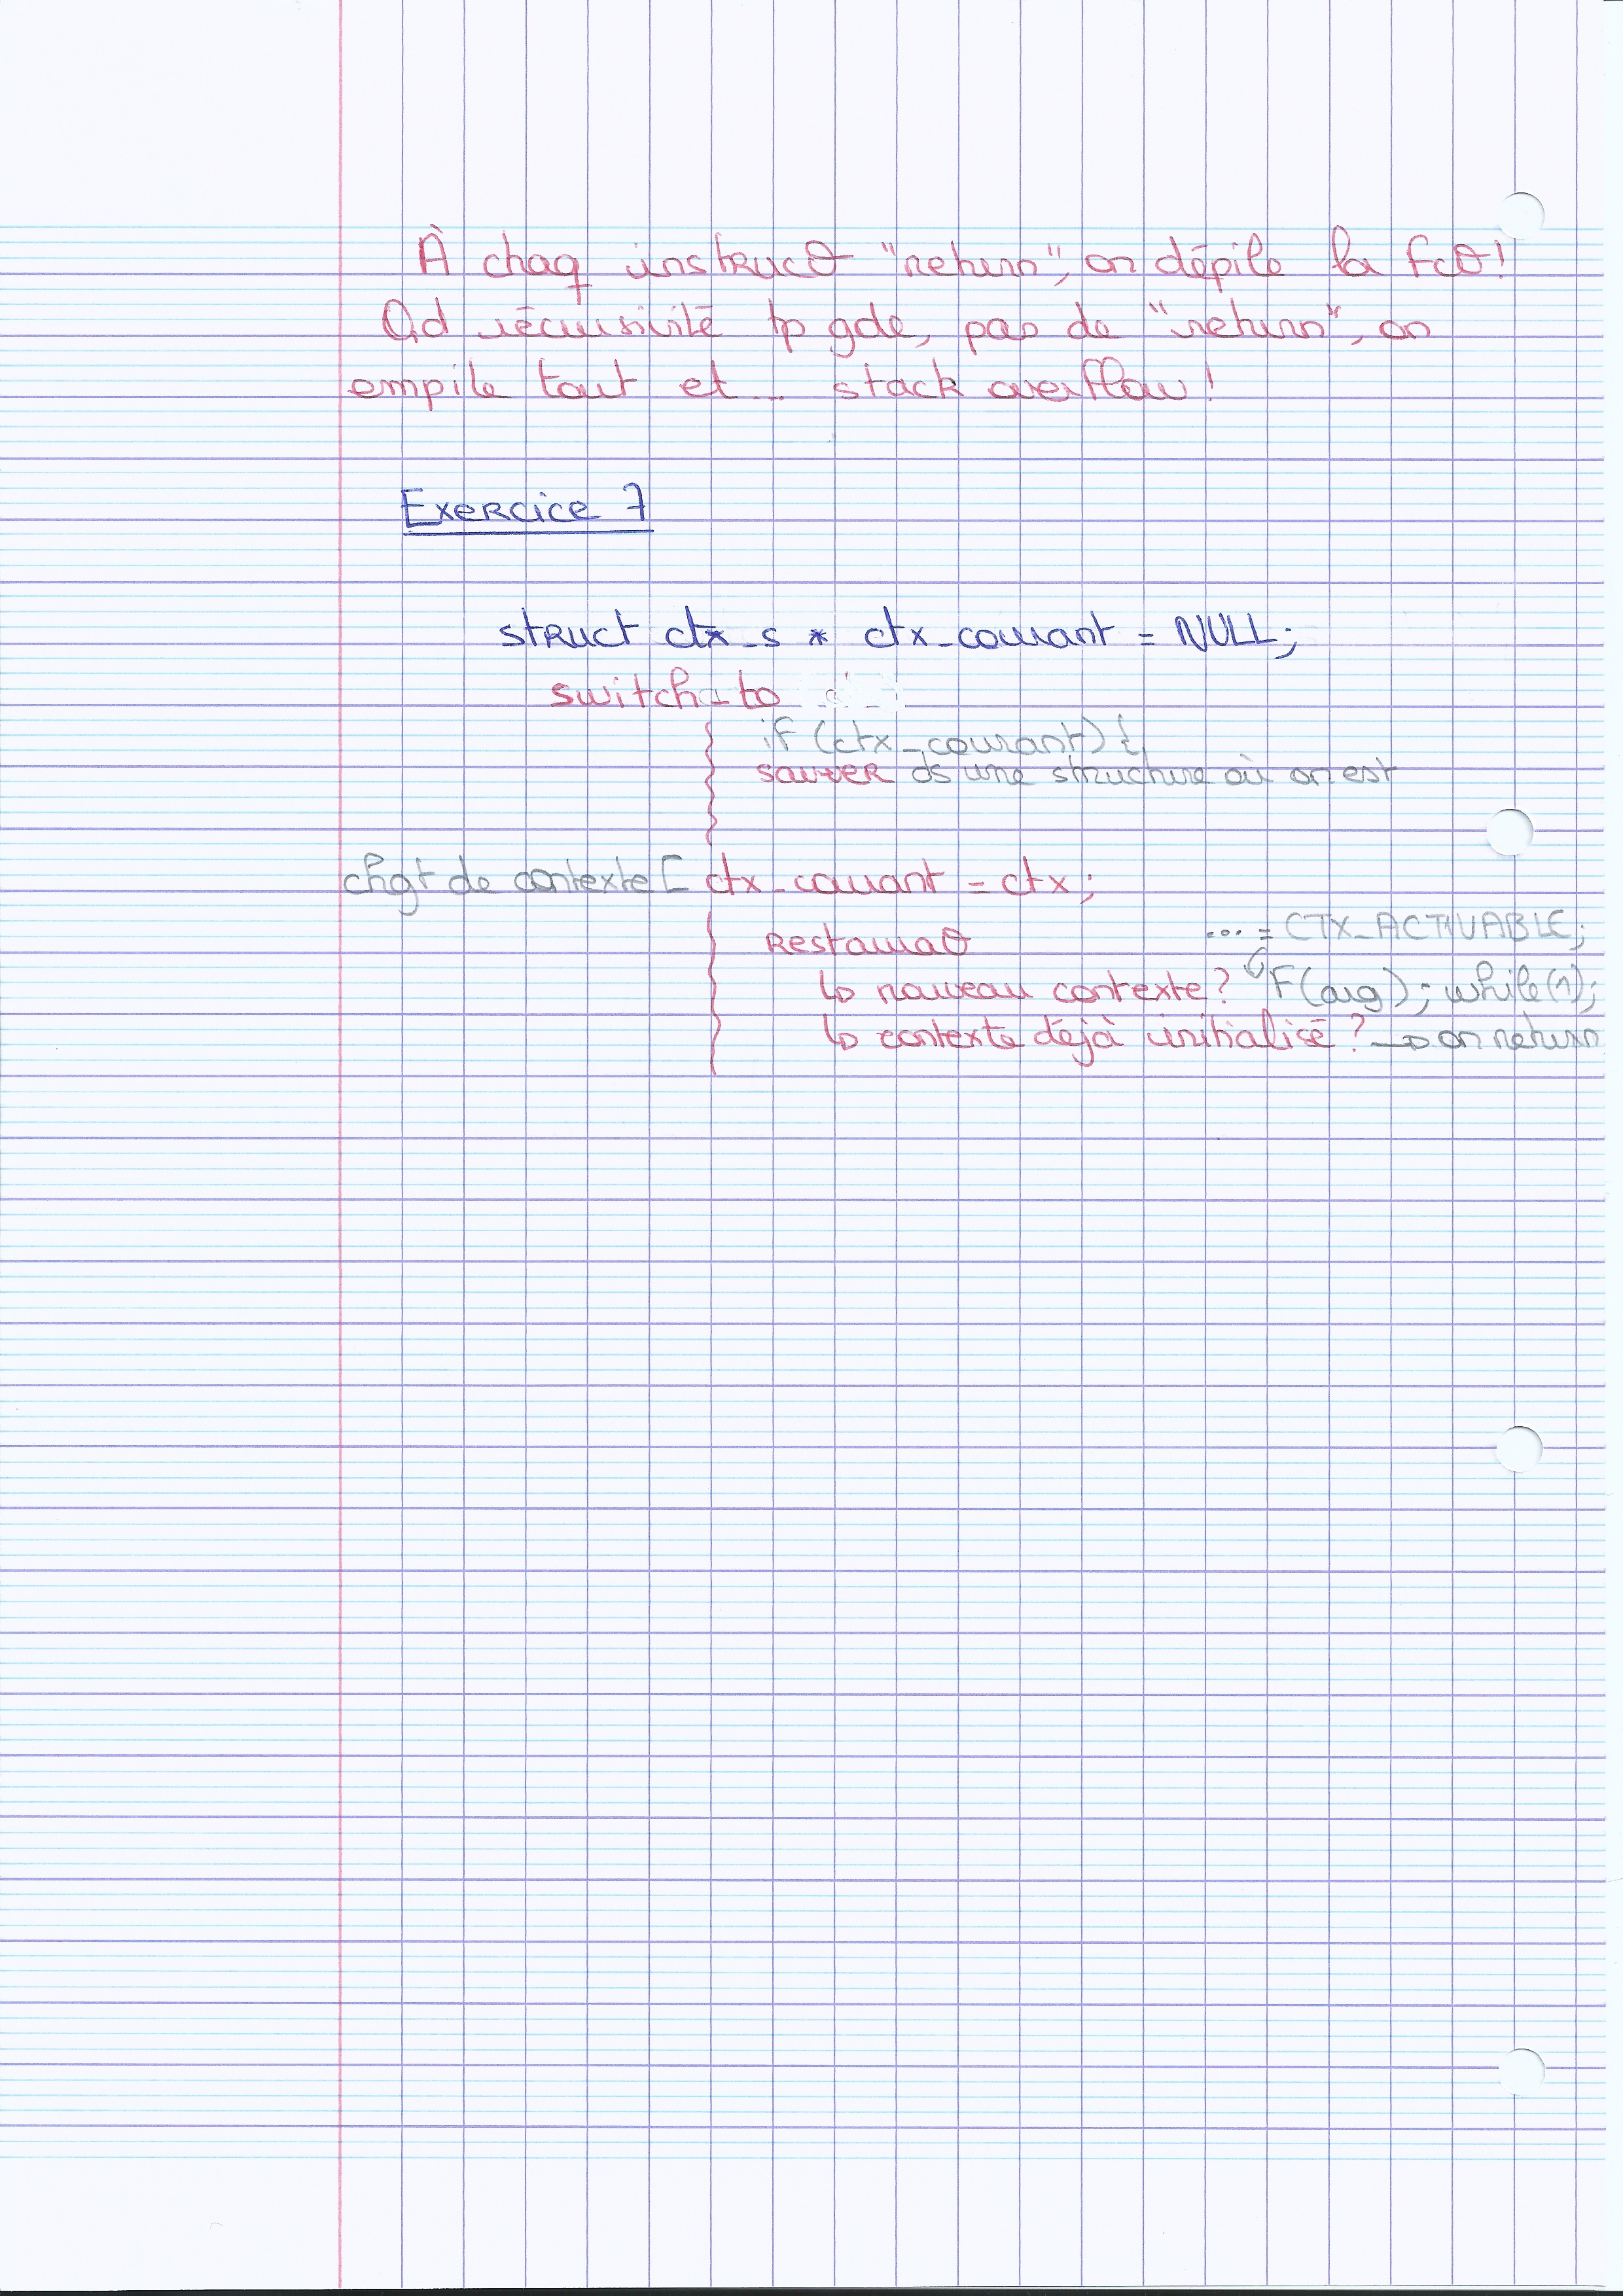 À chaq instrucθ "return", on dépile la fcθ!
Qd récursivité tp gde, pas de "return", on
empile tout et... stack overflow!
Exercice 7
struct ctx_s * ctx_courant = NULL;
switch_to
if (ctx_courant) {
sauver ds une structure où on est
chgt de contexte [ ctx_courant = ctx;
... = CTX_ACTIVABLE;
Restauraθ
↳ nouveau contexte? F(arg); while(1);
↳ contexte déjà initialisé? → on return